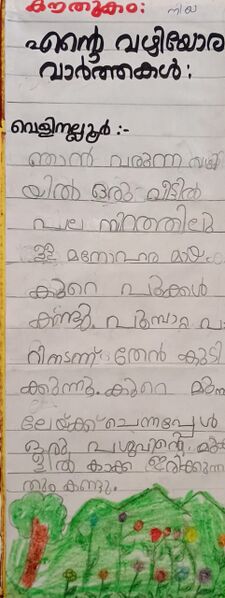 കൗതുകം: നിയ
എന്റെ വഴിയോര
വാർത്തകൾ:
വെളിനല്ലൂർ :-
ഞാൻ വരുന്ന വഴി
യിൽ ഒരു വീട്ടിൽ
പല നിറത്തിലു
ള്ള മനോഹര മായ
കുറെ പൂക്കൾ
കണ്ടു. പൂമ്പാറ്റ പ
റിനടന്ന് തേൻ കുടി
ക്കുന്നു. കുറെ
ലേയ്ക്ക് ചെന്നപ്പേൾ
ഒരു പശുവിന്റെ
ളിൽ കാക്ക ഇരിക്കുന്ന
തും കണ്ടു.